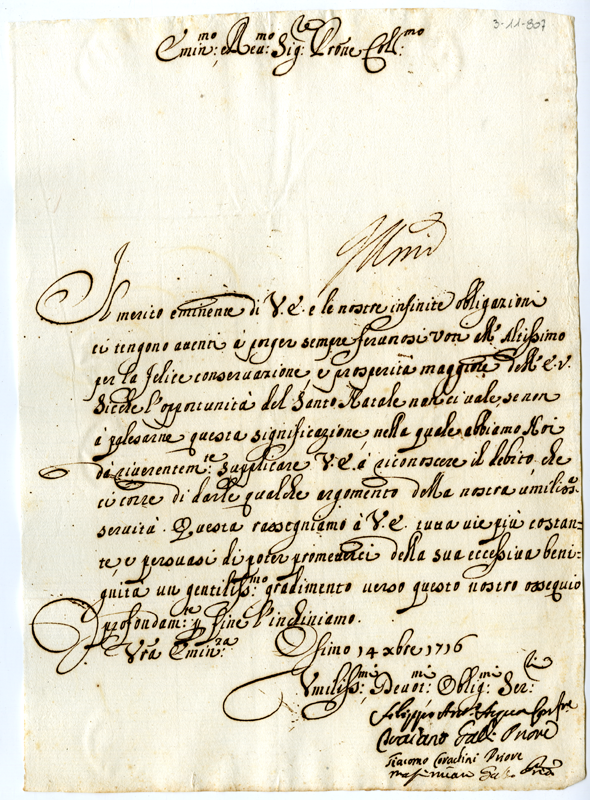 3-11-807
Emin:mo e Reu:mo Sig:re Prone Coll:mo
Il merito eminente di V.E. e le nostre infinite obligazioni
ci tengono auenti à porger sempre feruorosi Voti all' Altissimo
per la felice conseruazione, e prosperità maggiore dell' E.V.
Sicche l'opportunità del Santo Natale non ci uale, se non
à palesarne questa significazione, nella quale abbiamo Noi
da riuerentem:te supplicare V.E. à riconoscere il debito, che
ci corre di darle qualche argomento della nostra umilios:a
seruità. Questa rassegniamo à V.E. tutta uie più costan=
te, e persuasi di poter prometterci della sua eccessiua beni=
gnità un gentiliss:mo gradimento uerso questo nostro ossequio
profondam:te p fine l'inchiniamo.
Vra Emin:za Osimo 14 xbre 1716
Vmiliss:mi Deuot:mi Oblig:mi Ser:ri
Filippo Ant.o Acqua Conf.re
Gall: Priore
Giacomo Coradini Priore